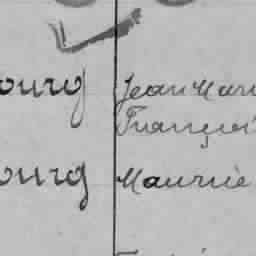 ourg Jean Mari
François
ourg Maurice